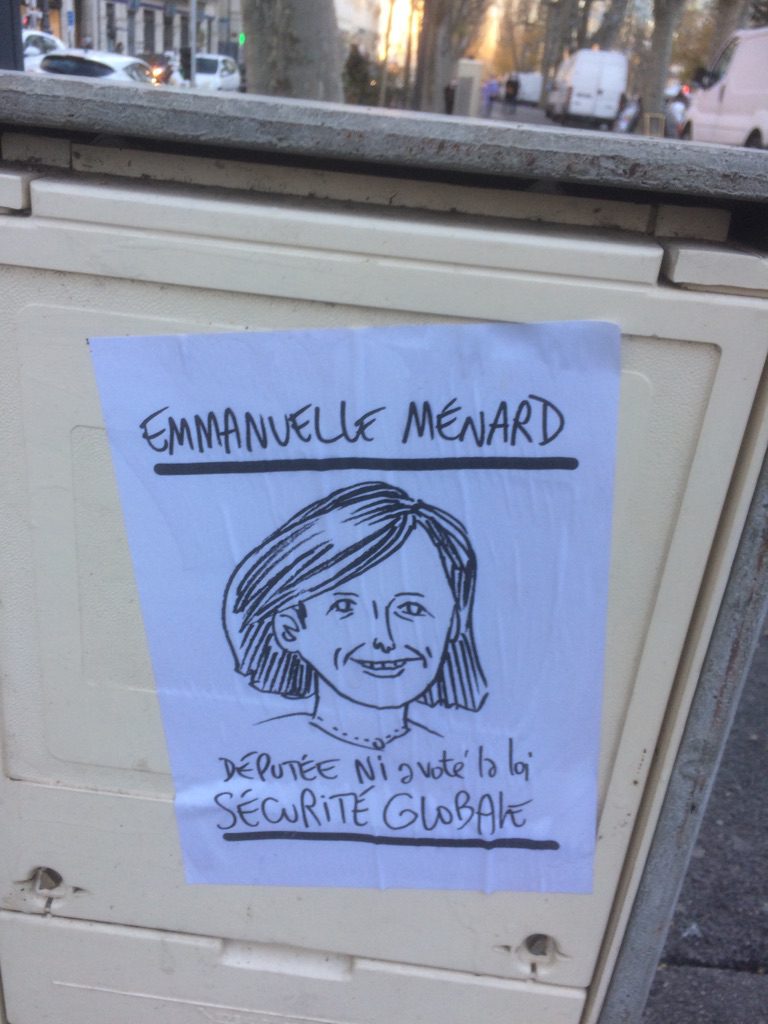 EMMANUELLE MÉNARD
DÉPUTÉE NI a voté la loi
SÉCURITÉ GLOBALE